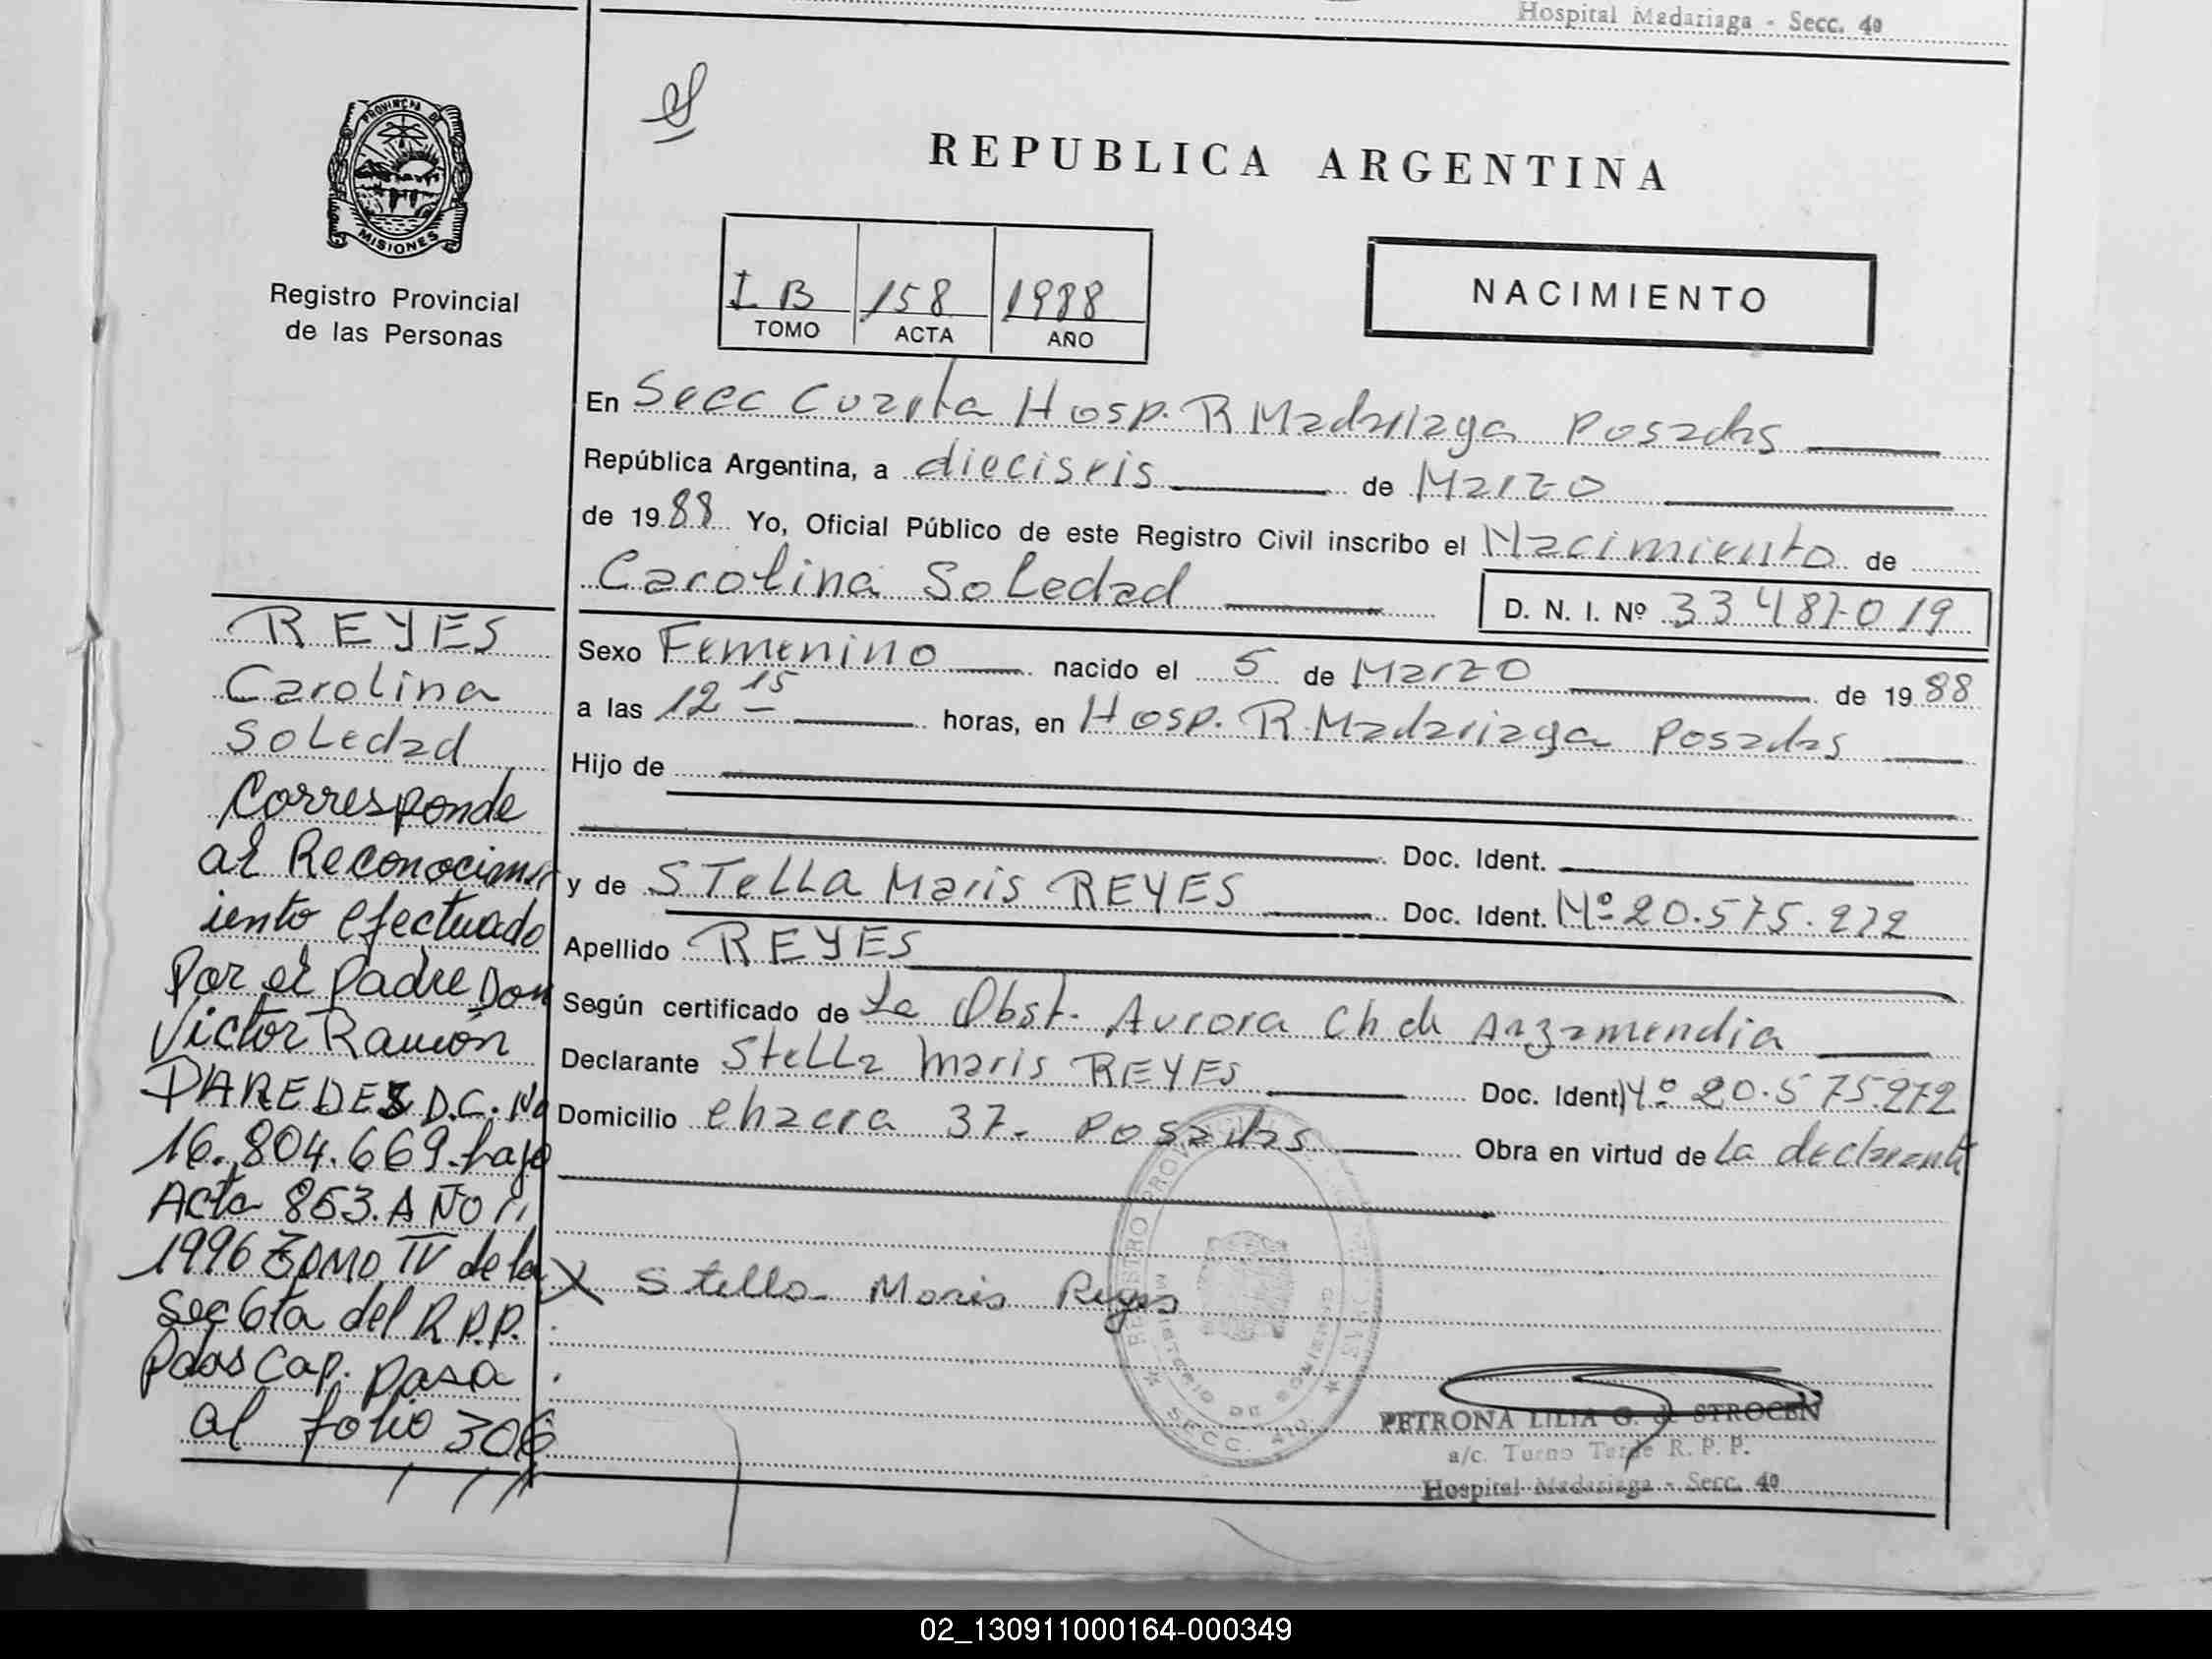 Hospital Madariaga - Secc. 4º
PROVINCIA DE
MISIONES
Registro Provincial
de las Personas
REPUBLICA ARGENTINA
I B 158 1988
TOMO ACTA AÑO
NACIMIENTO
En Secc Cuarta Hosp. R Madariaga Posadas
República Argentina, a dieciseis de Marzo
de 1988 Yo, Oficial Público de este Registro Civil inscribo el Nacimiento de
Carolina Soledad
D. N. I. Nº 33.487.019
Sexo Femenino nacido el 5 de Marzo de 1988
a las 12 15 horas, en Hosp. R. Madariaga Posadas
Hijo de
Doc. Ident.
y de STella Maris REYES Doc. Ident. Nº 20.575.272
Apellido REYES
Según certificado de La Obst. Aurora Ch de Arzamendia
Declarante Stella Maris REYES Doc. Ident Nº 20.575.272
Domicilio chacra 37. Posadas Obra en virtud de La declarante
X Stella Maris Reyes
REYES
Carolina
Soledad
Corresponde
al Reconocim
iento efectuado
Por el padre Don
Victor Ramón
PAREDES D.C. No
16.804.669. bajo
Acta 853. AÑO
1996 TOMO IV de la
Sec 6ta del R.P.P.
Pdas Cap. pasa
al folio 306
REGISTRO PROVINCIAL
MINISTERIO DE GOBIERNO
SECC. 4º
PETRONA LILIA G. de STROCEN
a/c. Turno Tarde R. P. P.
Hospital Madariaga - Secc. 4º
02_130911000164-000349